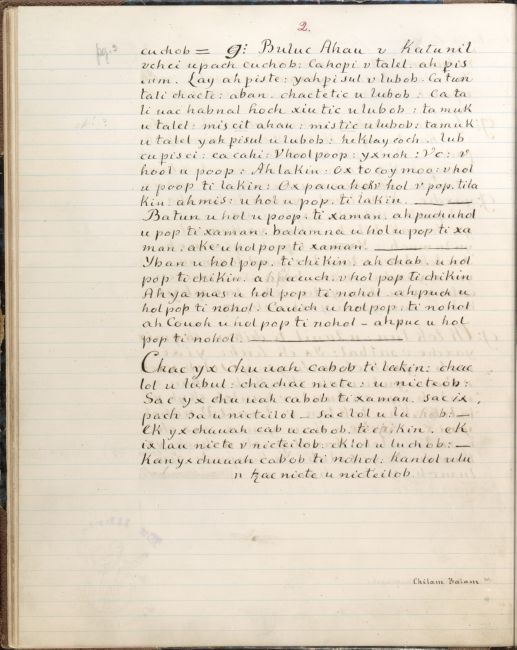 2.
pg. 2
cuchob = 9: Buluc Ahau v Katunil
vchci upach cuchob: Cahopi v talel. ah pis
ium. Lay ah piste: yah pisul v lubob. Ca tun
tali chacte: aban. chactetic u lubob: Ca ta
li uac habnal hoch xiu tic u lubob: tamuk
u talel: miscit ahau: mistic u lubob: tamuk
u talel yah pisul u lubob: heklay coch. lub
cu pisci: ca cahi: Vhool poop: yx noh: Vc: v
hool u poop: Ah lakin: Ox tocoy moo: v hol
u poop ti lakin: Ox pauah ek v hol v pop. ti la
kin: ah mis: u hol u pop. ti lakin.
Batun u hol u poop. ti xaman. ah puch u hol
u pop ti xaman. balamna u hol u pop ti xa
man. ake u hol pop ti xaman.
Yban u hol pop. ti chikin. ah chab. u hol
pop ti chikin. ah cuch. v hol pop ti chikin
Ah ya mas u hol pop ti nohol. ah puch u
hol pop ti nohol. Cauich u hol pop. ti nohol
ah Couoh u hol pop ti nohol - ah puc u hol
pop ti nohol
Chac yx chuuah cabob ti lakin: chac
lol u labul: chachac nicte: u nicteob:
Sac yx chuuah cabob ti xaman. sac ix
pach sa u nicteilob_ sac lol u lu b:_
Ek yx chuuah cab u cabob. ti chikin. ek
ix lau nicte v nicteilob. ek lol u luchob:_
Kan yx chuuah cabob ti nohol. kan lol u lu
tzac nicte u nicteilob
Chilam Balam